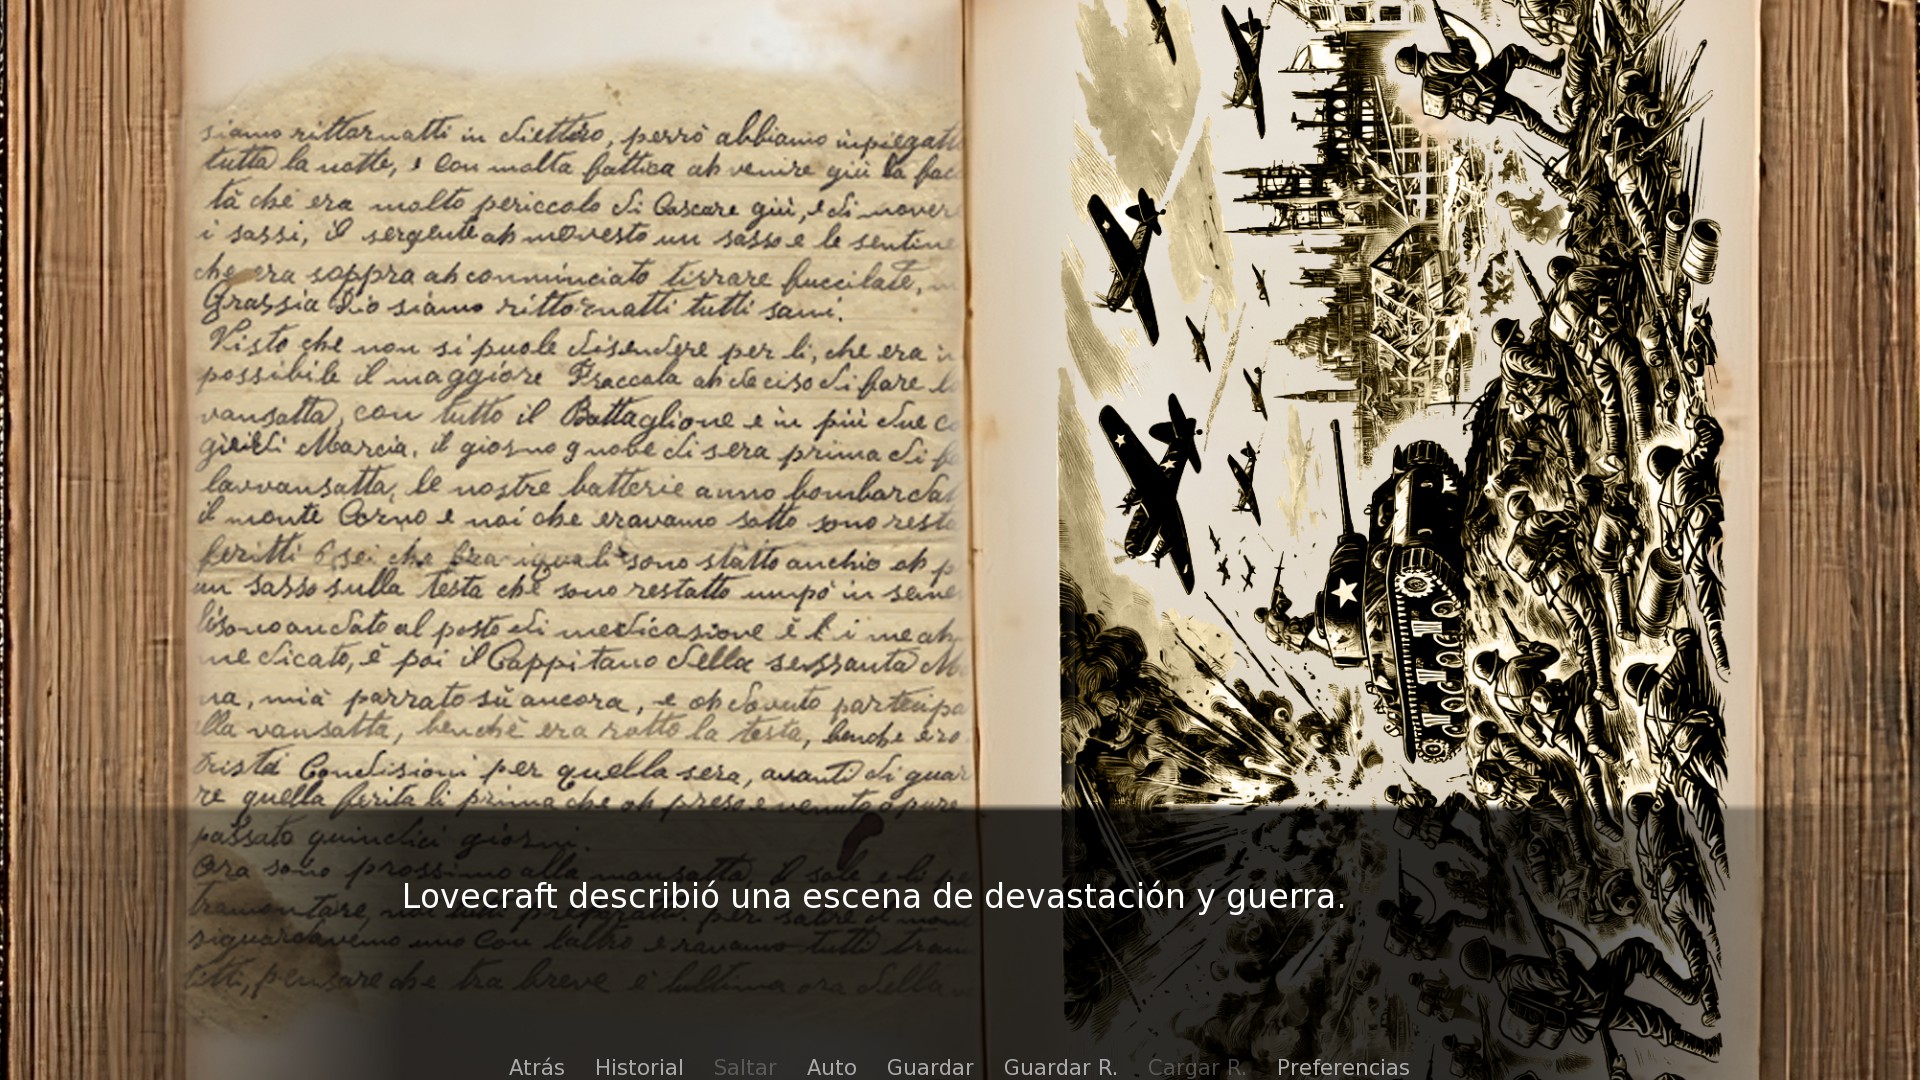 siamo rittornatti in diettro, perrò abbiamo inpiegatt
tutta la notte, e con molta fattica ah venire giù la fac
tà che era molto periccolo di Cascare giù, e di mover
i sassi, il sergente ah movesto un sasso e le sentine
che era soppra ah connminciato tirrare fuccilate,
Grassia Dio siamo rittornatti tutti sani.
Visto che non si puole disendere per li, che era in
possibile il maggiore Fraccola ah deciso di fare l
vansatta, con tutto il Battaglione e in più due c
di Marcia, il giorno 9 nobe di sera prima di f
lavvansatta, le nostre batterie anno bombardat
il monte Corno e noi che eravamo sotto sono resta
feritti 6 sei che fra i quali sono statto anchio oh p
un sasso sulla testa che sono restatto umpò in sene
andato al posto di medicasione è l i me ah
me dicato, è poi il Cappitano della sessanta M
na, mià parrato sù ancora, e oh dovuto partecipa
lla vansatta, benchè era rotto la testa, benche ero
trista Condisioni per quella sera, avanti di guar
re quella ferita li prima che oh preso e venuto
passato quindici giorni.
Ora sono prossimo alla vansatta, il sole e li pe
tramontare, noi tutti preparatti. per salire il mont
siguardavemo uno con laltro eravamo tutti tram
titti, pensare che tra breve è lultima ora della
Lovecraft describió una escena de devastación y guerra.
Atrás Historial Saltar Auto Guardar Guardar R. Cargar R. Preferencias